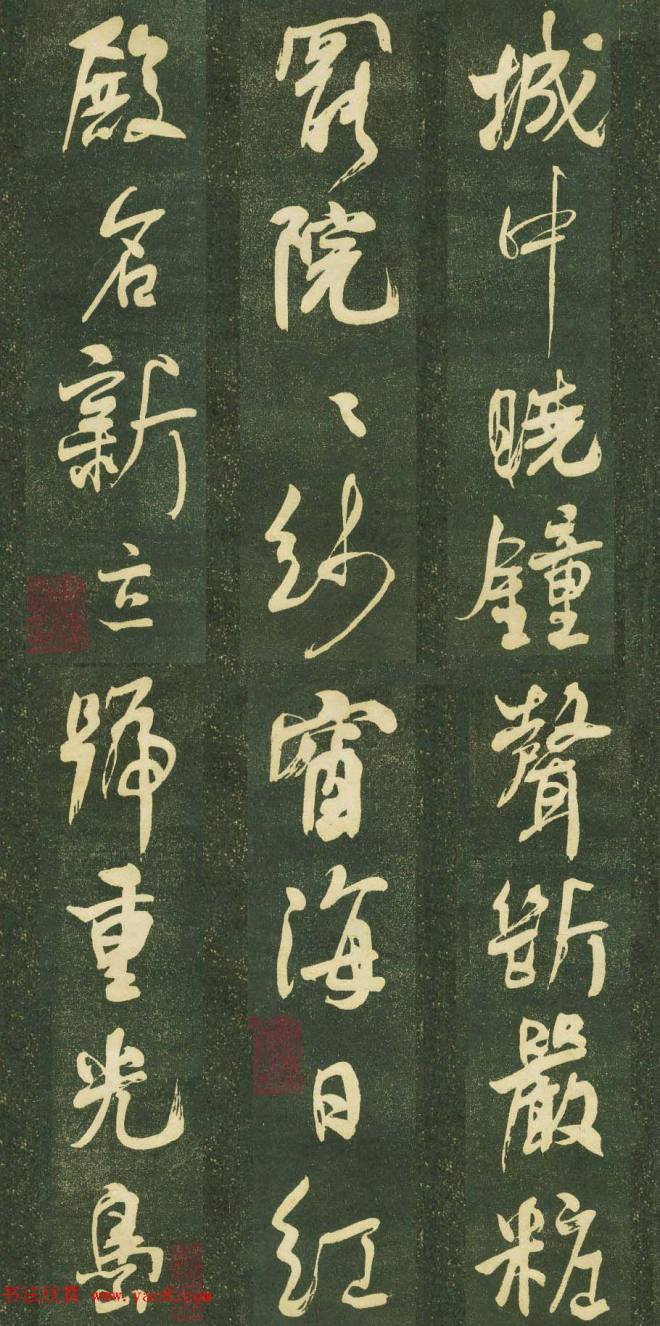 城中曉鐘聲斷嚴粧
罷院〻紗窗海日紅
殿名新立號重光島
书法欣赏 www.yac8.com